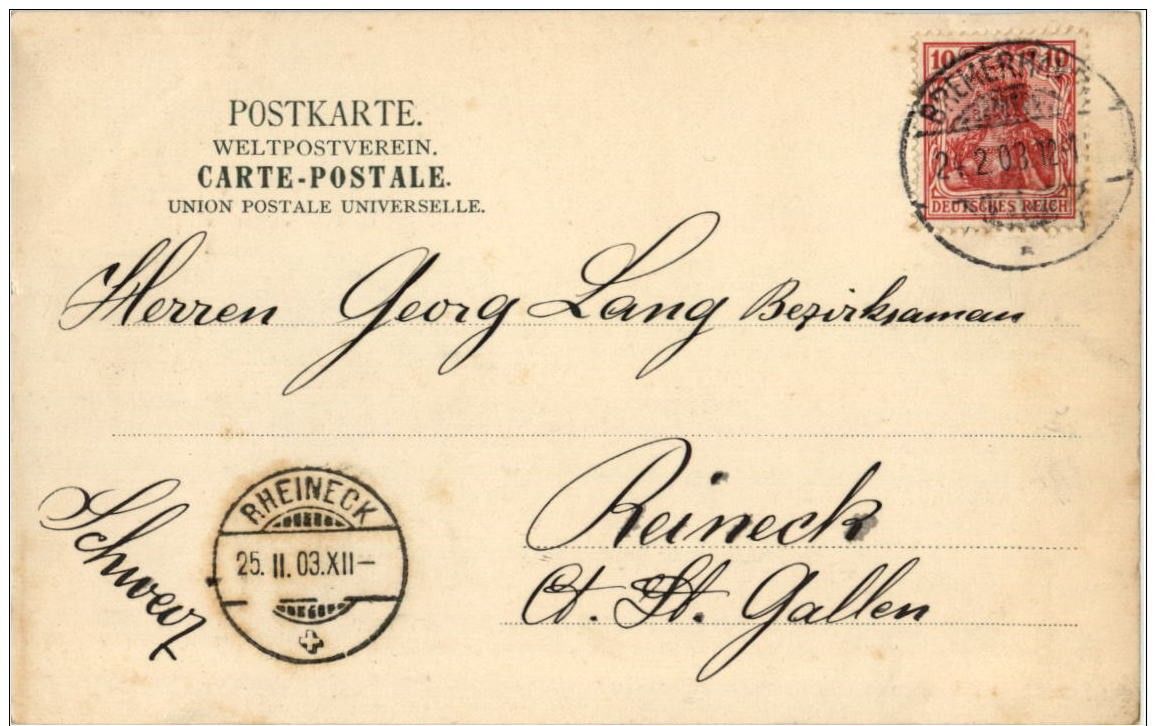 POSTKARTE.
WELTPOSTVEREIN.
CARTE-POSTALE.
UNION POSTALE UNIVERSELLE.
10 10
DEUTSCHES REICH
BREMERHA
2 03 12-1
Herren Georg Lang Bezirksaman
Reineck
Ct. St. Gallen
Schweiz
RHEINECK
25. II. 03. XII–